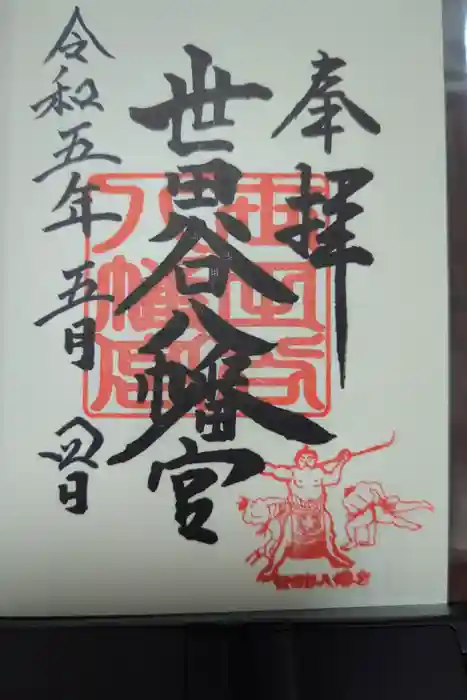 奉拝
世田谷八幡宮
令和五年五月四日
世田谷
八幡宮
世田谷八幡宮